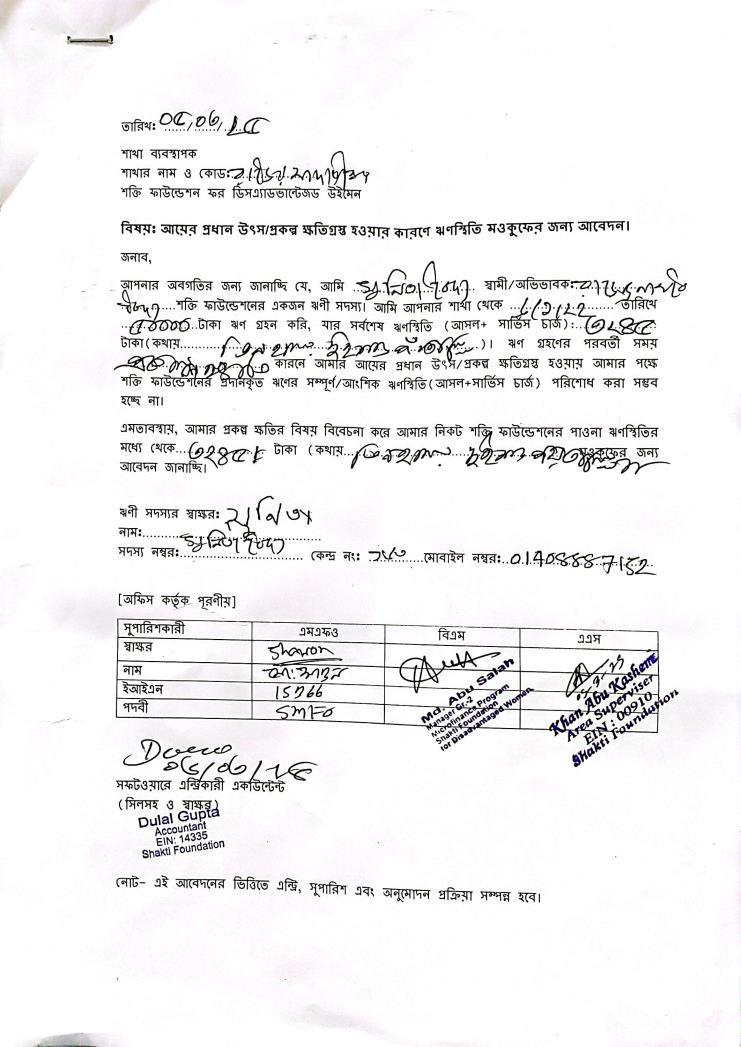 তারিখ: ০৫/০৬/২৫
শাখা ব্যবস্থাপক
শাখার নাম ও কোড:
শক্তি ফাউন্ডেশন ফর ডিসএ্যাডভান্টেজড উইমেন
বিষয়: আয়ের প্রধান উৎস/প্রকল্প ক্ষতিগ্রস্থ হওয়ার কারণে ঋণস্থিতি মওকুফের জন্য আবেদন।
জনাব,
আপনার অবগতির জন্য জানাচ্ছি যে, আমি স্বামী/অভিভাবক:
শক্তি ফাউন্ডেশনের একজন ঋণী সদস্য। আমি আপনার শাখা থেকে তারিখে
৫০০০০ টাকা ঋণ গ্রহন করি, যার সর্বশেষ ঋণস্থিতি (আসল+ সার্ভিস চার্জ): ৩২৪৫
টাকা(কথায় তিন হাজার দুইশত )। ঋণ গ্রহণের পরবর্তী সময়
কারনে আমার আয়ের প্রধান উৎস/প্রকল্প ক্ষতিগ্রস্থ হওয়ায় আমার পক্ষে
শক্তি ফাউন্ডেশনের প্রদানকৃত ঋণের সম্পূর্ণ/আংশিক ঋণস্থিতি(আসল+সার্ভিস চার্জ) পরিশোধ করা সম্ভব
হচ্ছে না।
এমতাবস্থায়, আমার প্রকল্প ক্ষতির বিষয় বিবেচনা করে আমার নিকট শক্তি ফাউন্ডেশনের পাওনা ঋণস্থিতির
মধ্যে থেকে ৩২৪৫ টাকা (কথায় তিন হাজার দুইশত মওকুফের জন্য
আবেদন জানাচ্ছি।
ঋণী সদস্যর স্বাক্ষর: সুনিতা
নাম: সুনিতা
সদস্য নম্বর: কেন্দ্র নং: মোবাইল নম্বর: 01408887152
[অফিস কর্তৃক পূরণীয়]
সুপারিশকারী এমএফও বিএম এএস
স্বাক্ষর Shawon
নাম
ইআইএন 15266
পদবী SMFO
Md. Abu Salah
Manager Gr-2
Microfinance Program
Shakti Foundation
for Disadvantaged Women
Khan Abu Kashem
Area Superviser
EIN : 00910
Shakti Foundation
সফটওয়ারে এন্ট্রিকারী একাউন্টেন্ট
(সিলসহ ও স্বাক্ষর)
Dulal Gupta
Accountant
EIN: 14335
Shakti Foundation
নোট- এই আবেদনের ভিত্তিতে এন্ট্রি, সুপারিশ এবং অনুমোদন প্রক্রিয়া সম্পন্ন হবে।